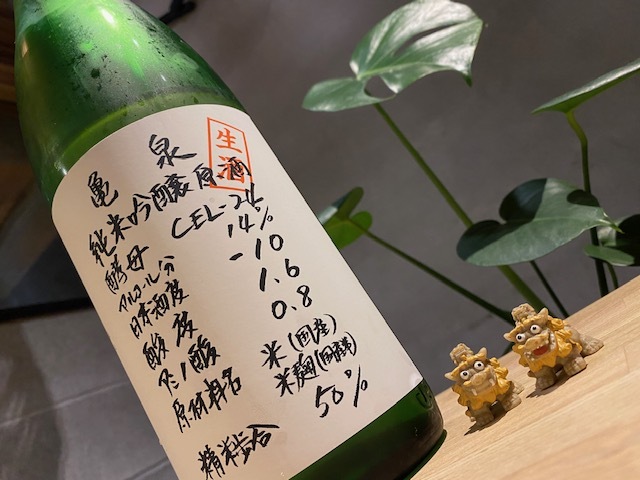 生酒
亀泉
純米吟醸原酒
酵母 CEL-24
アルコール分 14%
日本酒度 -10
酸度 1.6
アミノ酸 0.8
原材料名 米(国産)
米麹(国産米)
精米歩合 50%